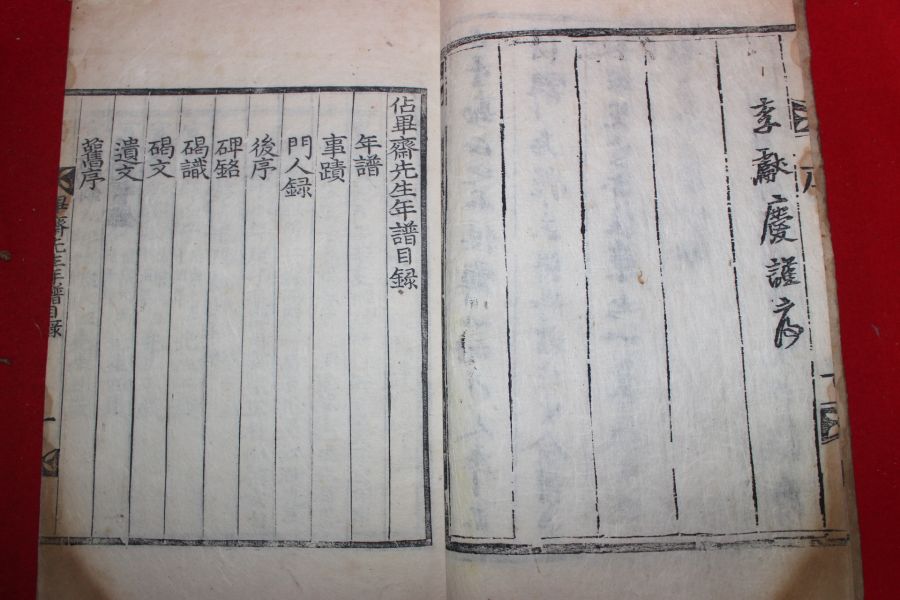 李獻慶謹序
佔畢齋先生年譜目録
年譜
事蹟
門人録
後序
碑銘
碣識
碣文
遺文
舊序
畢齋先生年譜目録
一